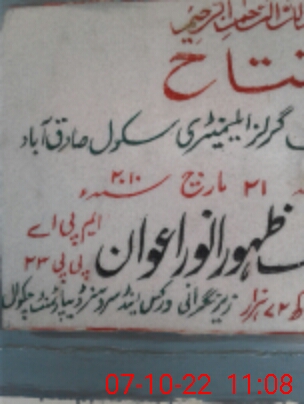 الرحمن الرحیم
تتاح
گرلز ایلیمنٹری سکول صادق آباد
۲۱ مارچ ۲۰۱۰ء
ظہور انور اعوان ایم پی اے پی پی ۲۳
۷۲ ہزار زیر نگرانی ورکس اینڈ سروسز ڈیپارٹمنٹ چکوال
07-10-22 11:08